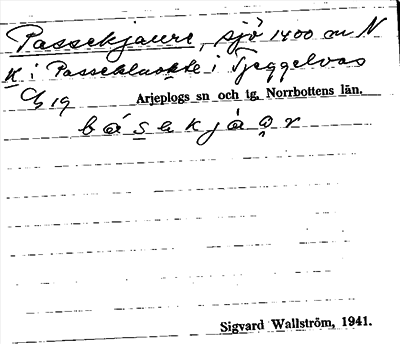 Passekjaure, sjö 1400 m N
K i Passekluokte i Tjeggelvas
Ch 19 Arjeplogs sn och tg, Norrbottens län.
básekjàor
Sigvard Wallström, 1941.